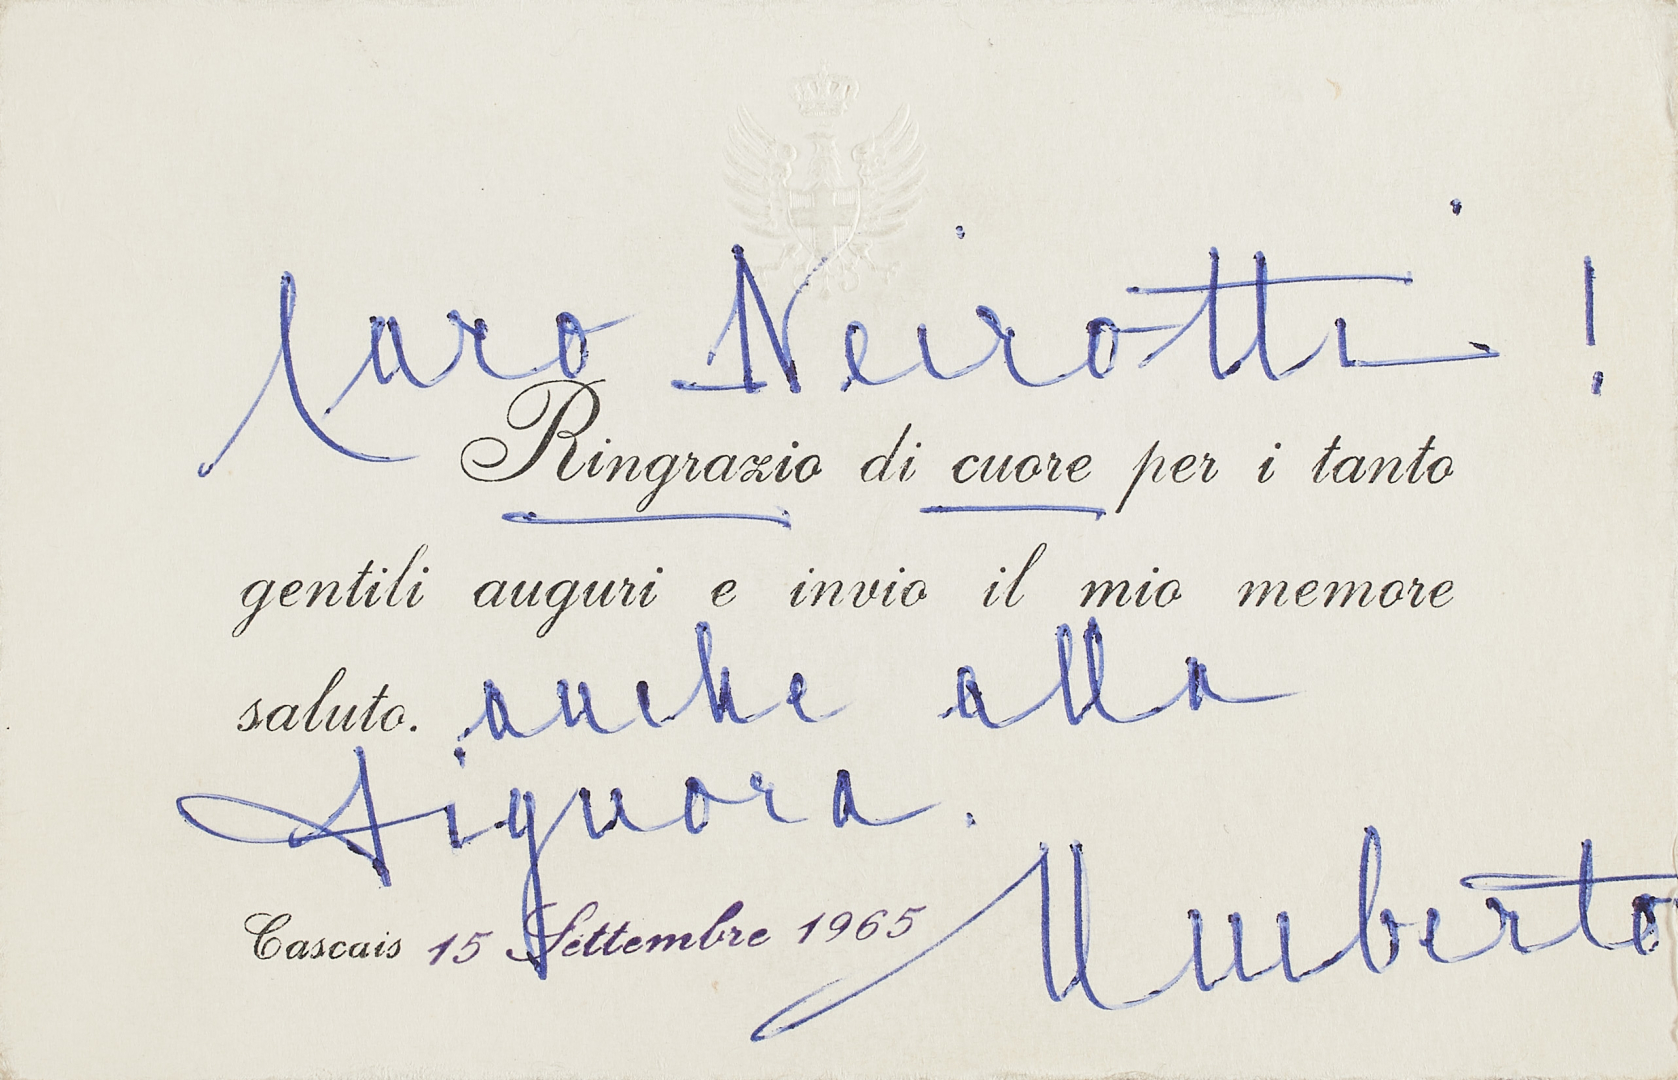 Caro Neirotti !
Ringrazio di cuore per i tanto
gentili auguri e invio il mio memore
saluto. anche alla
Signora.
Cascais 15 Settembre 1965
Umberto